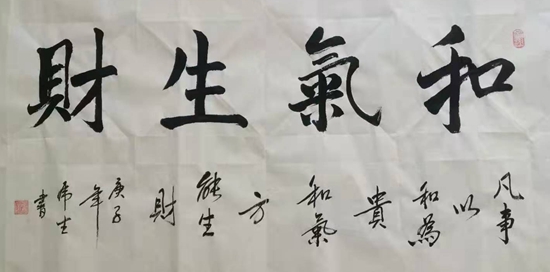 和氣生財
凡事以和為貴和氣方能生財
庚子年生書